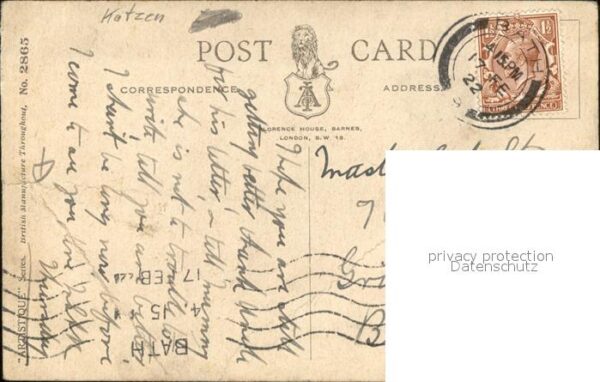 Katzen
POST CARD
CORRESPONDENCE
ADDRESS
FLORENCE HOUSE, BARNES,
LONDON, S.W. 13.
BATH
4.15 PM
17 FE
22
1½
I hope you are still
getting better thank
for his letter, & tell mummy
she is not to trouble to
write till you are better
I shan't be long now before
I come to see you, love
Master
7
privacy protection
Datenschutz
BATH
4.15
17 FEB
"ARTISTIQUE" Series. British Manufacture Throughout. No. 2865